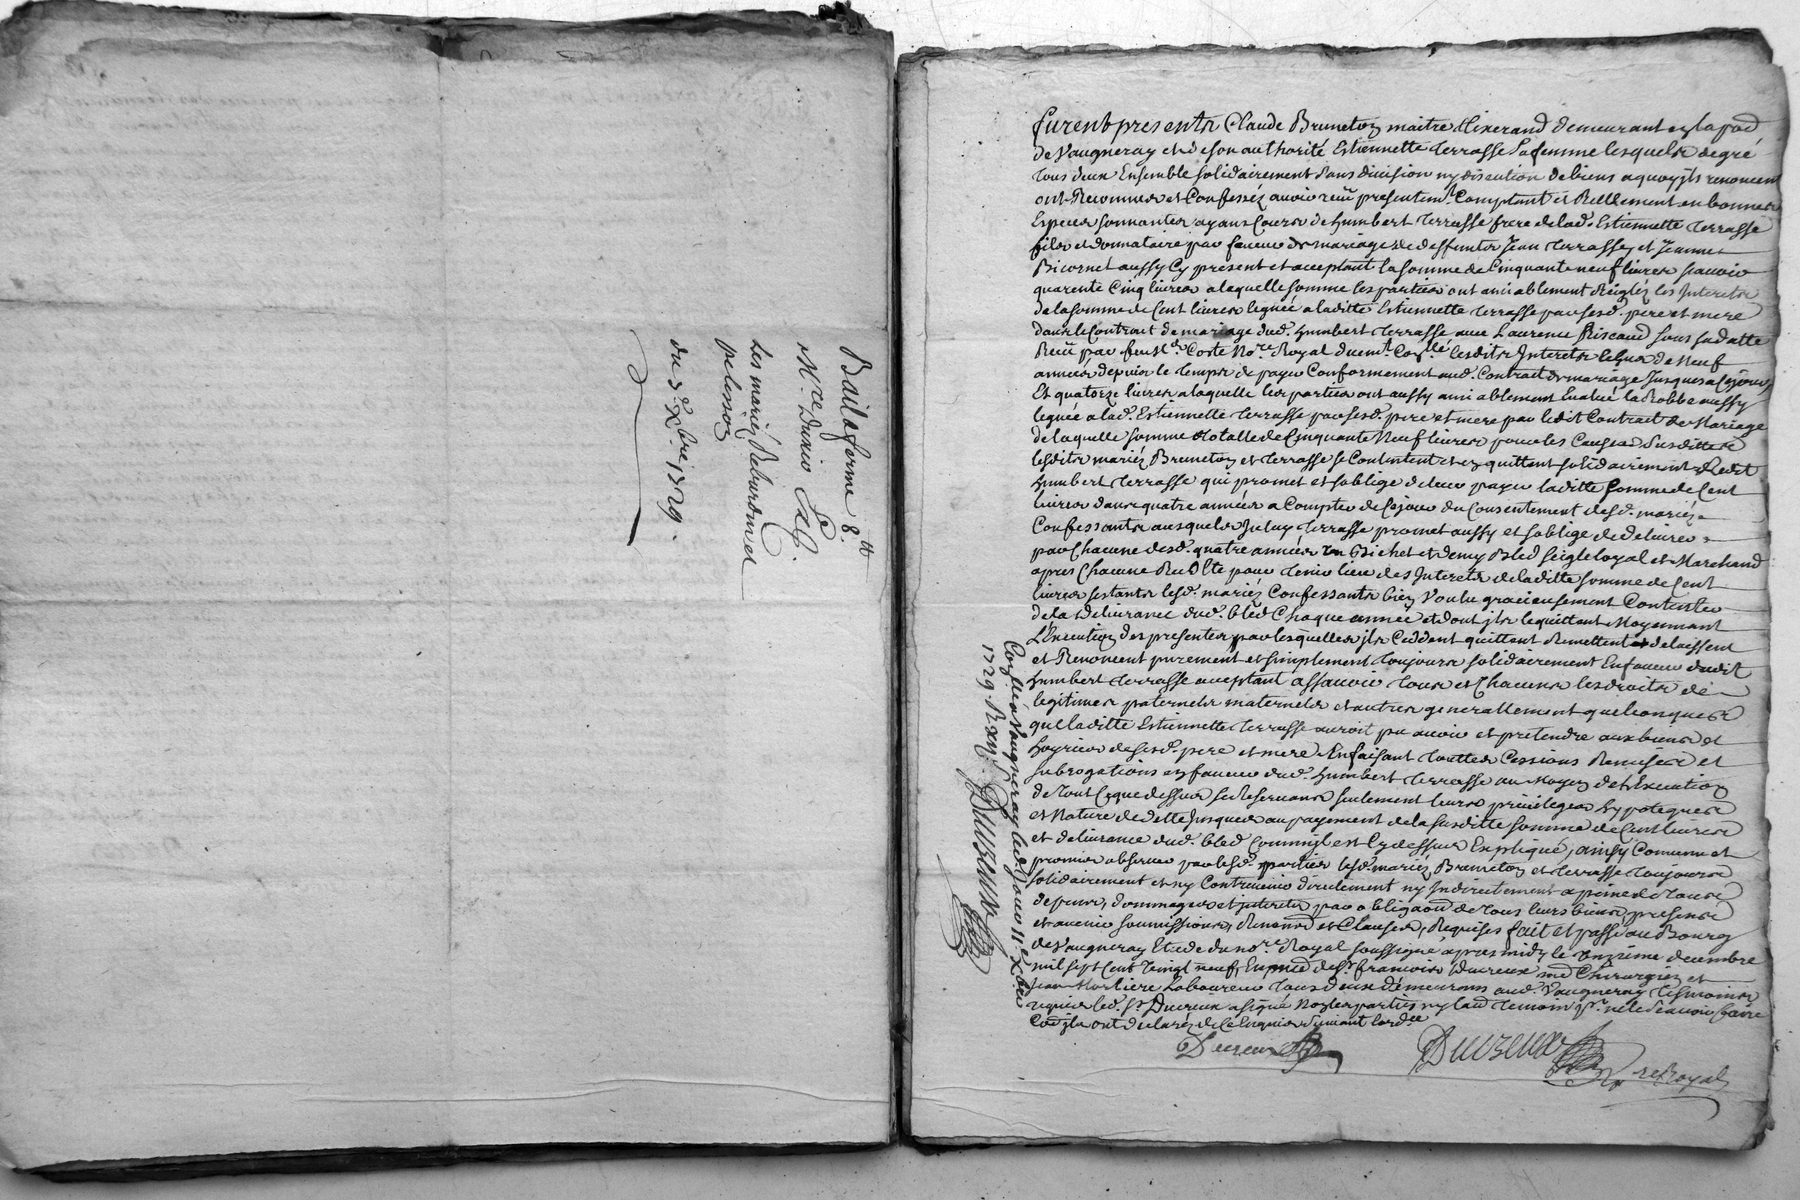 Bail a ferme 8.tt
Mre Durieu
Les mariés Rebourdin et
pelosson
du 3e xbre 1729.
furent presents Claude Bruneton maitre tixerand demeurant en la par
de Vaugneray et de son authorité Estiennette terrasse sa femme lesquels de gré
tous deux Ensemble solidairement sans division ny discution de biens a quoy ils renoncent
ont Reconnus et Confessés avoir reçu presentemt. Comptant et Rellement en bonnes
Especes sonnantes ayans Cours de humbert terrasse frere de lad. Estiennette terrasse
fils et donnataire par faveur de mariage de deffunts Jean terrasse et Jeanne
Bicornet aussy Cy present et acceptant la somme de Cinquante neuf livres scavoir
quarente Cinq livres a laquelle somme les parties ont amiablement Reiglés les Interets
de la somme de Cent livres leguée a laditte Estiennette terrasse par sesd. pere et mere
dans le Contrat de mariage dud. humbert terrasse avec Laurence Riscaud sous sa datte
Reçu par feu Me. Coste Nore Royal duemt. Conllé lesdits Interets Echus de Neuf
années depuis le temps de payer Conformement aud. Contrat de mariage Jusques a Cejour
Et quatorze livres a laquelle les parties ont aussy amiablement Evalué la Robbe aussy
leguée a lad. Estiennette terrasse par sesd. pere et mere par ledit Contrat de Mariage
de laquelle somme totalle de Cinquante Neuf livres pour les Causes Susdittes
lesdits mariés Bruneton et terrasse se Contentent et en quittent solidairement Ledit
humbert terrasse qui promet et soblige de leur payer laditte somme de Cent
livres dans quatre années a Compter de Cejour du Consentement desd. mariés
Confessants ausquels Iceluy terrasse promet aussy et soblige de delivrer
par Chacune desd. quatre années un Bichet et demy Bled seigle loyal et Marchand
apres Chacune Recolte pour tenir lieu des Interets de laditte somme de Cent
livres restants lesd. mariés Confessants bien Voulu gracieusement Contenter
de la delivrance dud. bled Chaque année et dont ils le quittent Moyennant
L'Execution des presentes par lesquelles ils Ceddent quittent Remettent et delaissent
et Renoncent purement et simplement toujours solidairement En faveur dudit
humbert terrasse acceptant assavoir tous et Chacuns les droits de
legitimes paternels maternels et autres generallement quelconques
que laditte Estiennette terrasse auroit pu avoir et pretendre aux biens et
hoyries de sesd. pere et mere En faisant touttes Cessions Remises et
subrogations en faveur dud. humbert terrasse au Moyen de l'Execution
de tout Ceque dessus se Reservants seulement leurs privileges hypoteques
et Nature de dette Jusques au payement de la susditte somme de Cent livres
et delivrance dud. bled Comm'il est Cy dessus Expliqué, ainsy Convenu et
promis observer par lesd. parties lesd. mariés Bruneton et terrasse toujours
solidairement et ny Contrevenir directement ny Indirectement a peine de tous
depens, dommages et interets par obligaon de tous leurs biens presens
et avenir soumissions, Renonons et Clauses, Requises fait et passé au Bourg
de Vaugneray Etude du nore Royal soussigné apres midy le Onzieme decembre
mil sept Cent Vingt neuf, En presce de sr. francois Ducreux me Chirurgien et
Jean Morliere Laboureur tous deux demeurans aud. Vaugneray tesmoins
requis led. sr. Ducreux a signé Non les parties ny laud temoin pr. ne le Scavoir faire
Cequ'ils ont declarés de Ce Enquis Suivant lordce
Ducreux
Ducreux
Nore Royal
Conllé a Vaugneray led. jour 11e. xbre
1729. R
Ducreux